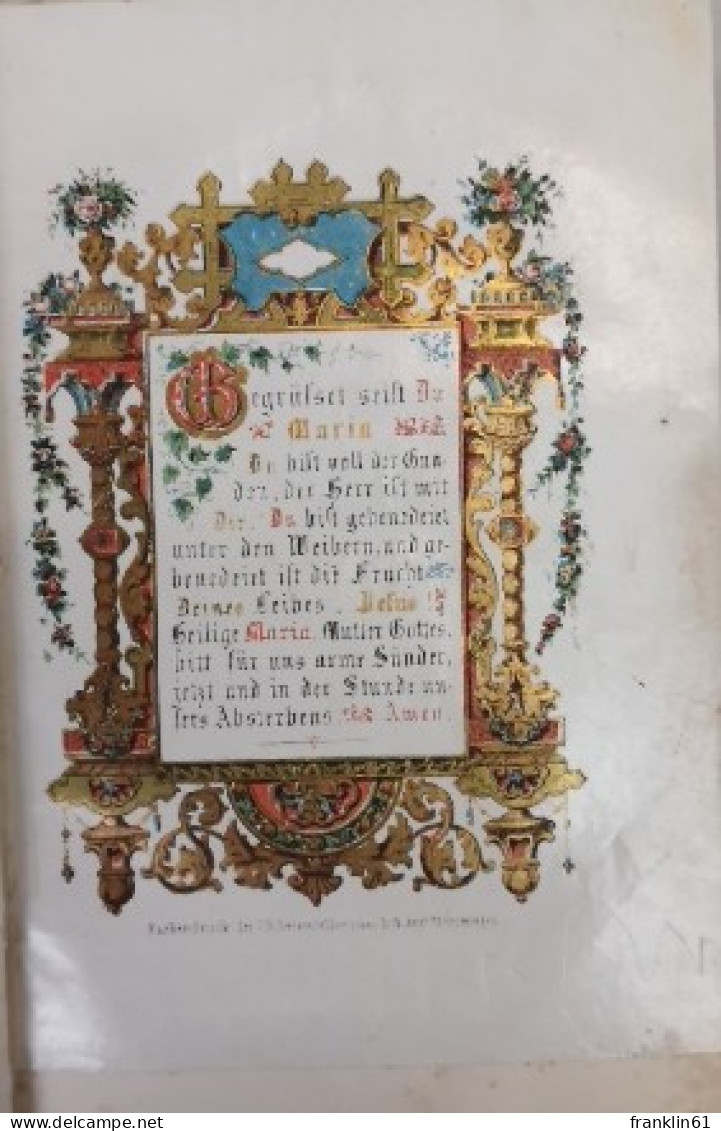 Gegrüßet seist Du
Maria
Du bist voll der Gna-
den, der Herr ist mit
Dir, Du bist gebenedeiet
unter den Weibern, und ge-
benedeiet ist die Frucht
Deines Leibes, Jesus!
Heilige Maria, Mutter Gottes,
bitt für uns arme Sünder,
jetzt und in der Stunde un-
sers Absterbens Amen.
franklin61
delcampe.net